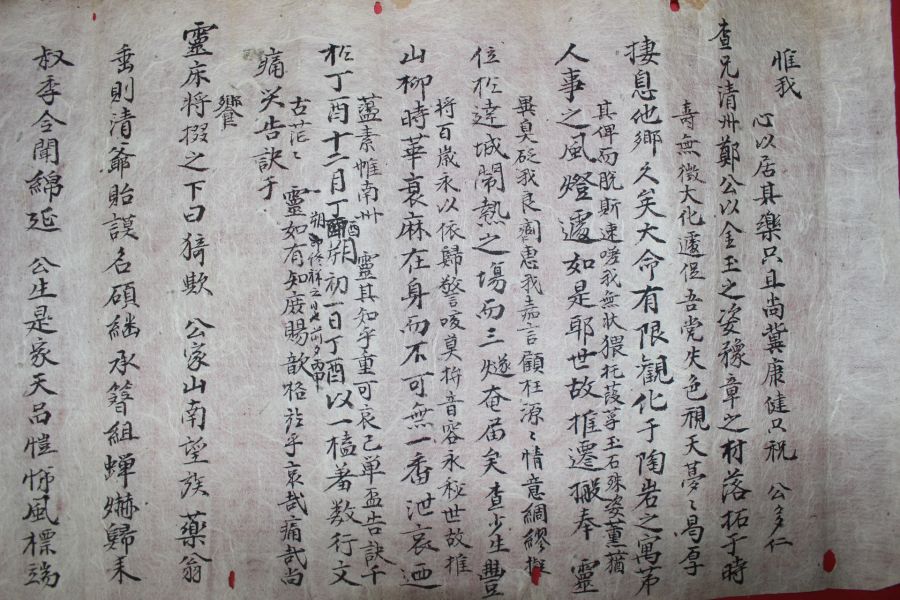 惟我
心以居其樂只且尚冀康健只祝 公多仁
查兄清州鄭公以金玉之姿豫章之材落拓于時
壽無徵大化遽促吾党失色視天夢〻曷厚
棲息他鄉久矣大命有限觀化于陶岩之寓茀
其俾而脫斯速嗟我無狀猥托葭莩玉石殊姿薰蕕
人事之風燈遽如是耶世故推遷搬奉 靈
異臭砭我良劑惠我嘉言顧枉源〻情意綢繆擬
位於達城鬧熱之塲而三燧奄届矣 查少生豐
將百歲永以依歸警咳莫拚音容永秘世故推
山柳時華衰麻在身而不可無一番泄哀迺
薀素帷南州 靈其知乎重可哀已単盃告訣千
於丁酉十二月丁酉朔初一日丁酉以一榼薄数行文
古茫〻 靈如有知庶賜歆格於乎哀哉痛哉尚
痛哭告訣于
饗
靈床將掇之下曰猗歟 公家山南望族 藥翁
垂則清爺貽謨名碩継承簪組蟬嚇歸来
叔季令聞綿延 公生是家天品愷悌風標端